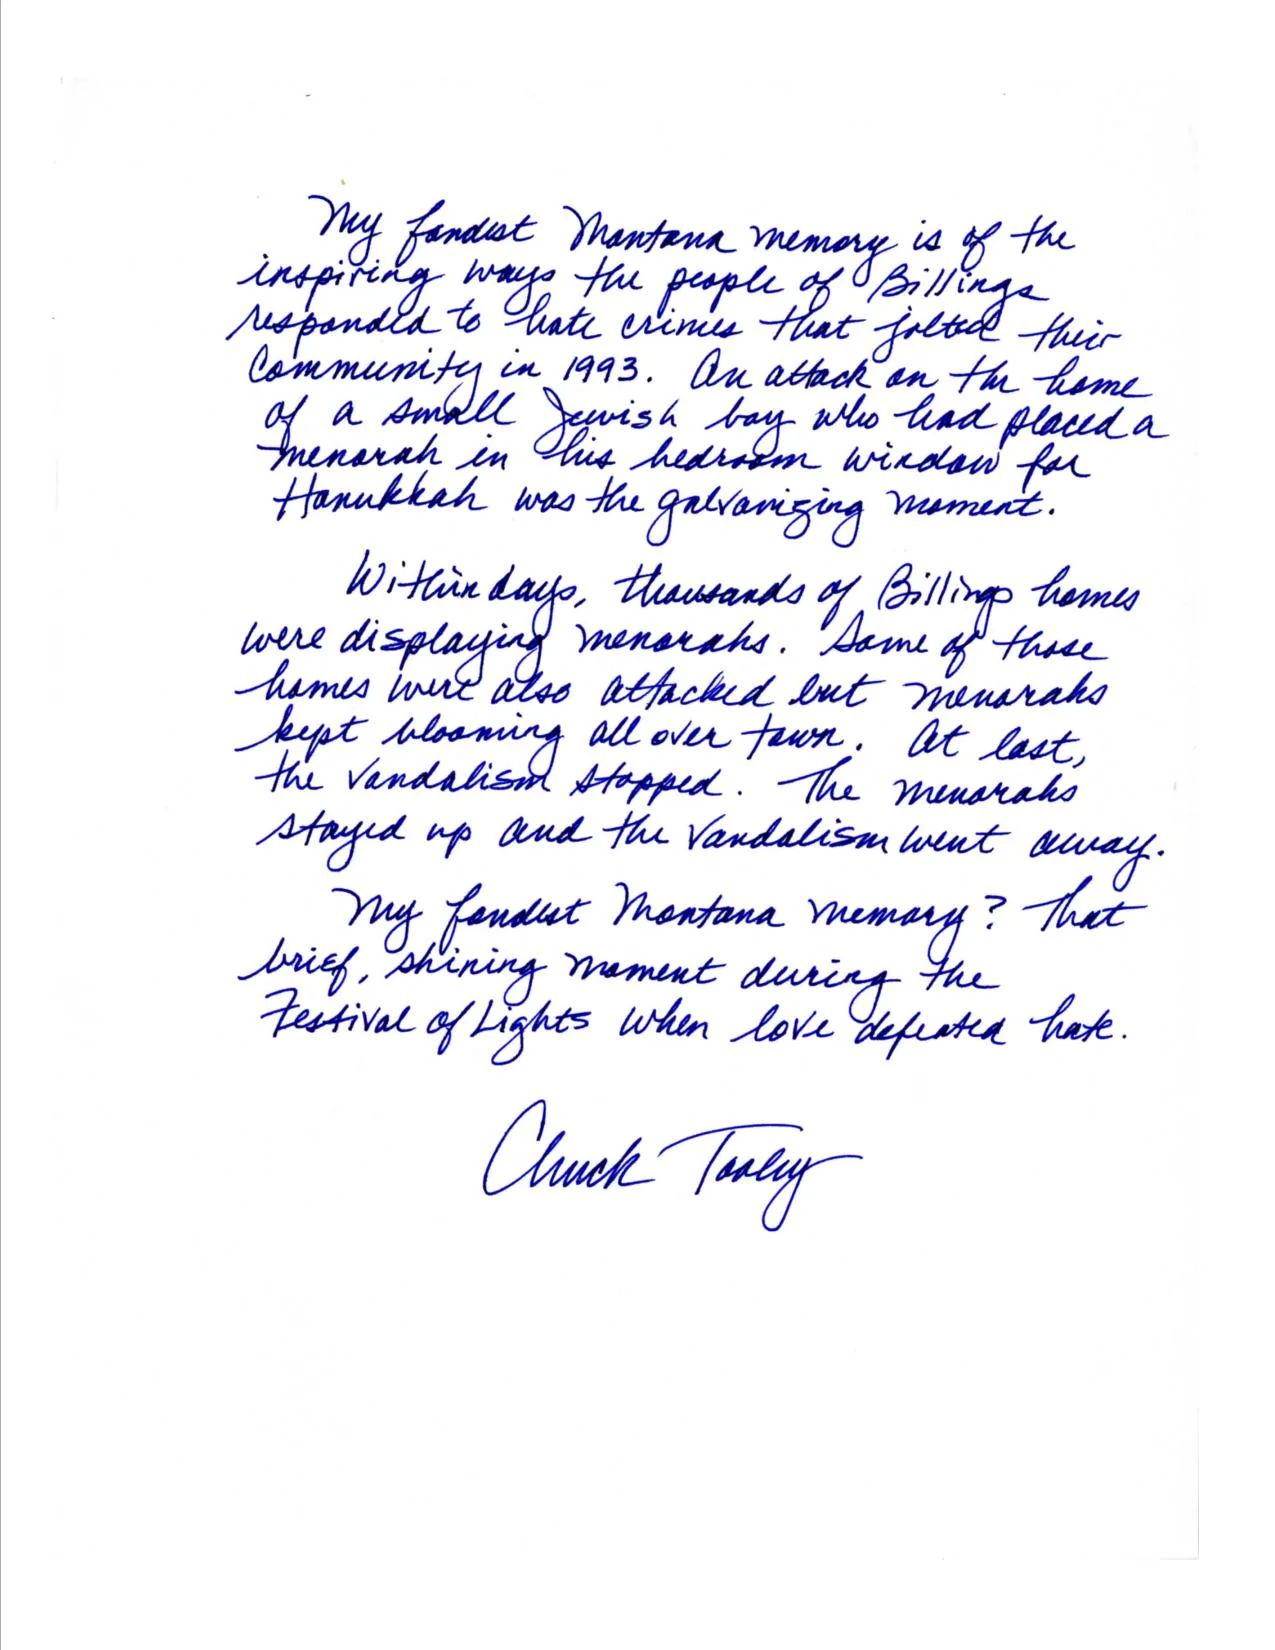 My fondest Montana memory is of the
inspiring ways the people of Billings
responded to hate crimes that jolted their
Community in 1993. An attack on the home
of a small Jewish boy who had placed a
menorah in his bedroom window for
Hanukkah was the galvanizing moment.
Within days, thousands of Billings homes
were displaying menorahs. Some of those
homes were also attacked but menorahs
kept blooming all over town. At last,
the vandalism stopped. The menorahs
stayed up and the vandalism went away.
My fondest Montana memory? That
brief, shining moment during the
Festival of Lights when love defeated hate.
Chuck Tooley